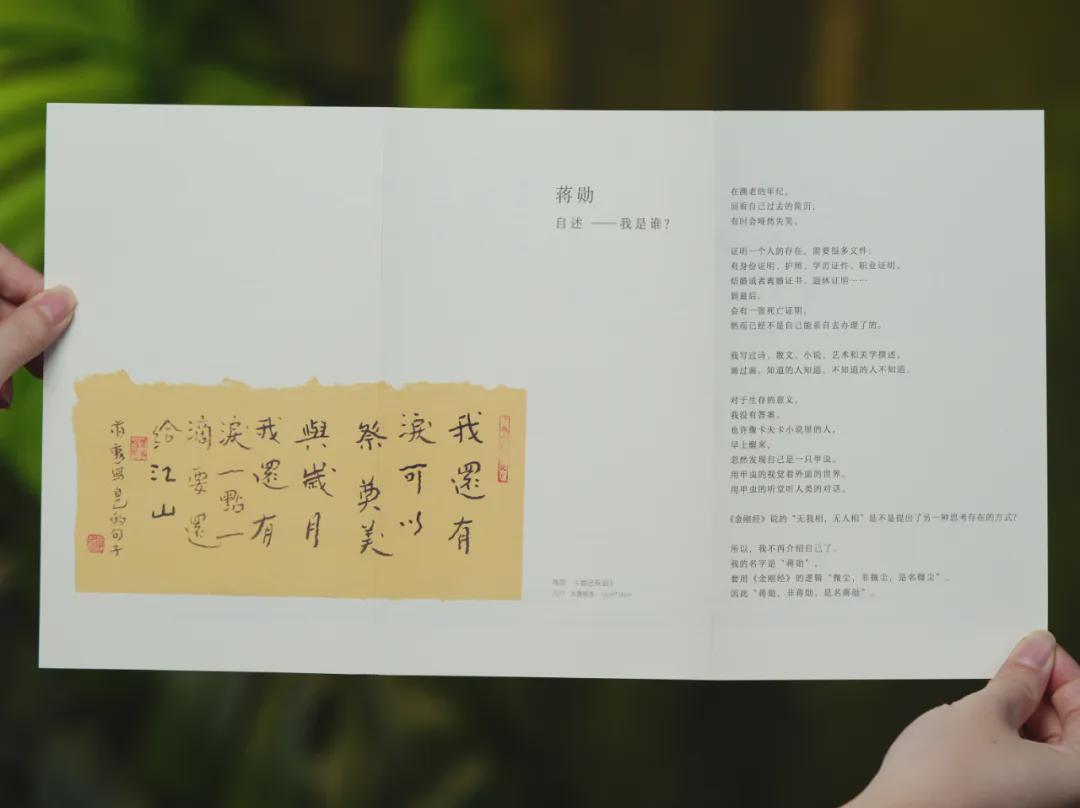 我還有
淚可以
祭奠美
與歲月
我還有
淚一點一
滴要還
給江山
蔣勳寫自己的句子
蒋勋
自述 ——我是谁？
在渐老的年纪，
回看自己过去的简历，
有时会哑然失笑。
证明一个人的存在，需要很多文件：
有身份证明、护照、学历证件、职业证明，
结婚或者离婚证书、退休证明……
到最后，
会有一张死亡证明，
然而已经不是自己能亲自去办理了的。
我写过诗、散文、小说、艺术和美学描述，
画过画，知道的人知道，不知道的人不知道。
对于生存的意义，
我没有答案，
也许像卡夫卡小说里的人，
早上醒来，
忽然发现自己是一只甲虫，
用甲虫的视觉看外面的世界，
用甲虫的听觉听人类的对话。
《金刚经》说的“无我相，无人相”是不是提出了另一种思考存在的方式？
所以，我不再介绍自己了。
我的名字是“蒋勋”，
套用《金刚经》的逻辑“微尘，非微尘，是名微尘”，
因此“蒋勋，非蒋勋，是名蒋勋”。